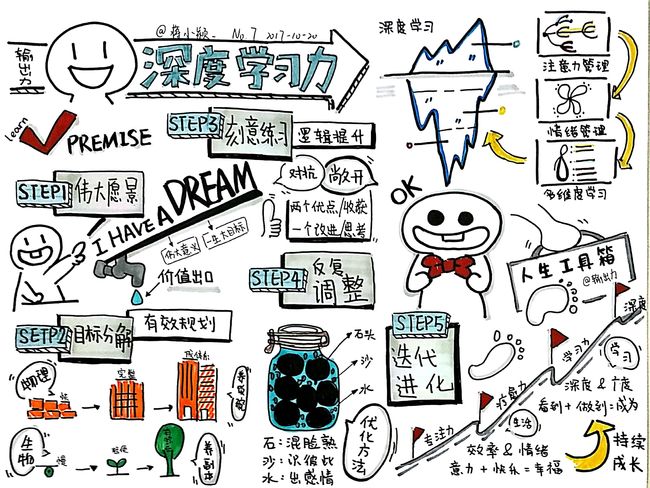 输出力
@蒋小颖_ No.7 2017-10-20
深度学习力
learn
PREMISE
STEP1
伟大愿景
I HAVE A DREAM
伟大意义
一生大目标
价值出口
SETP2
目标分解
有效规划
物理
完整
生物
STEP3
刻意练习
逻辑提升
对抗
两个优点/收获
一个改进/思考
STEP4
反复
调整
石头
沙
水
石:混脸熟
沙:识彼此
水:出感情
优化方法
深度学习
注意力管理
情绪管理
多维度学习
OK
人生工具箱
@输出力
STEP5
迭代
进化
专注力
学习力
深度
生活
学习
深度 & 广度
看到+做到=成为
效率 & 情绪
意力+快乐=幸福
持续
成长